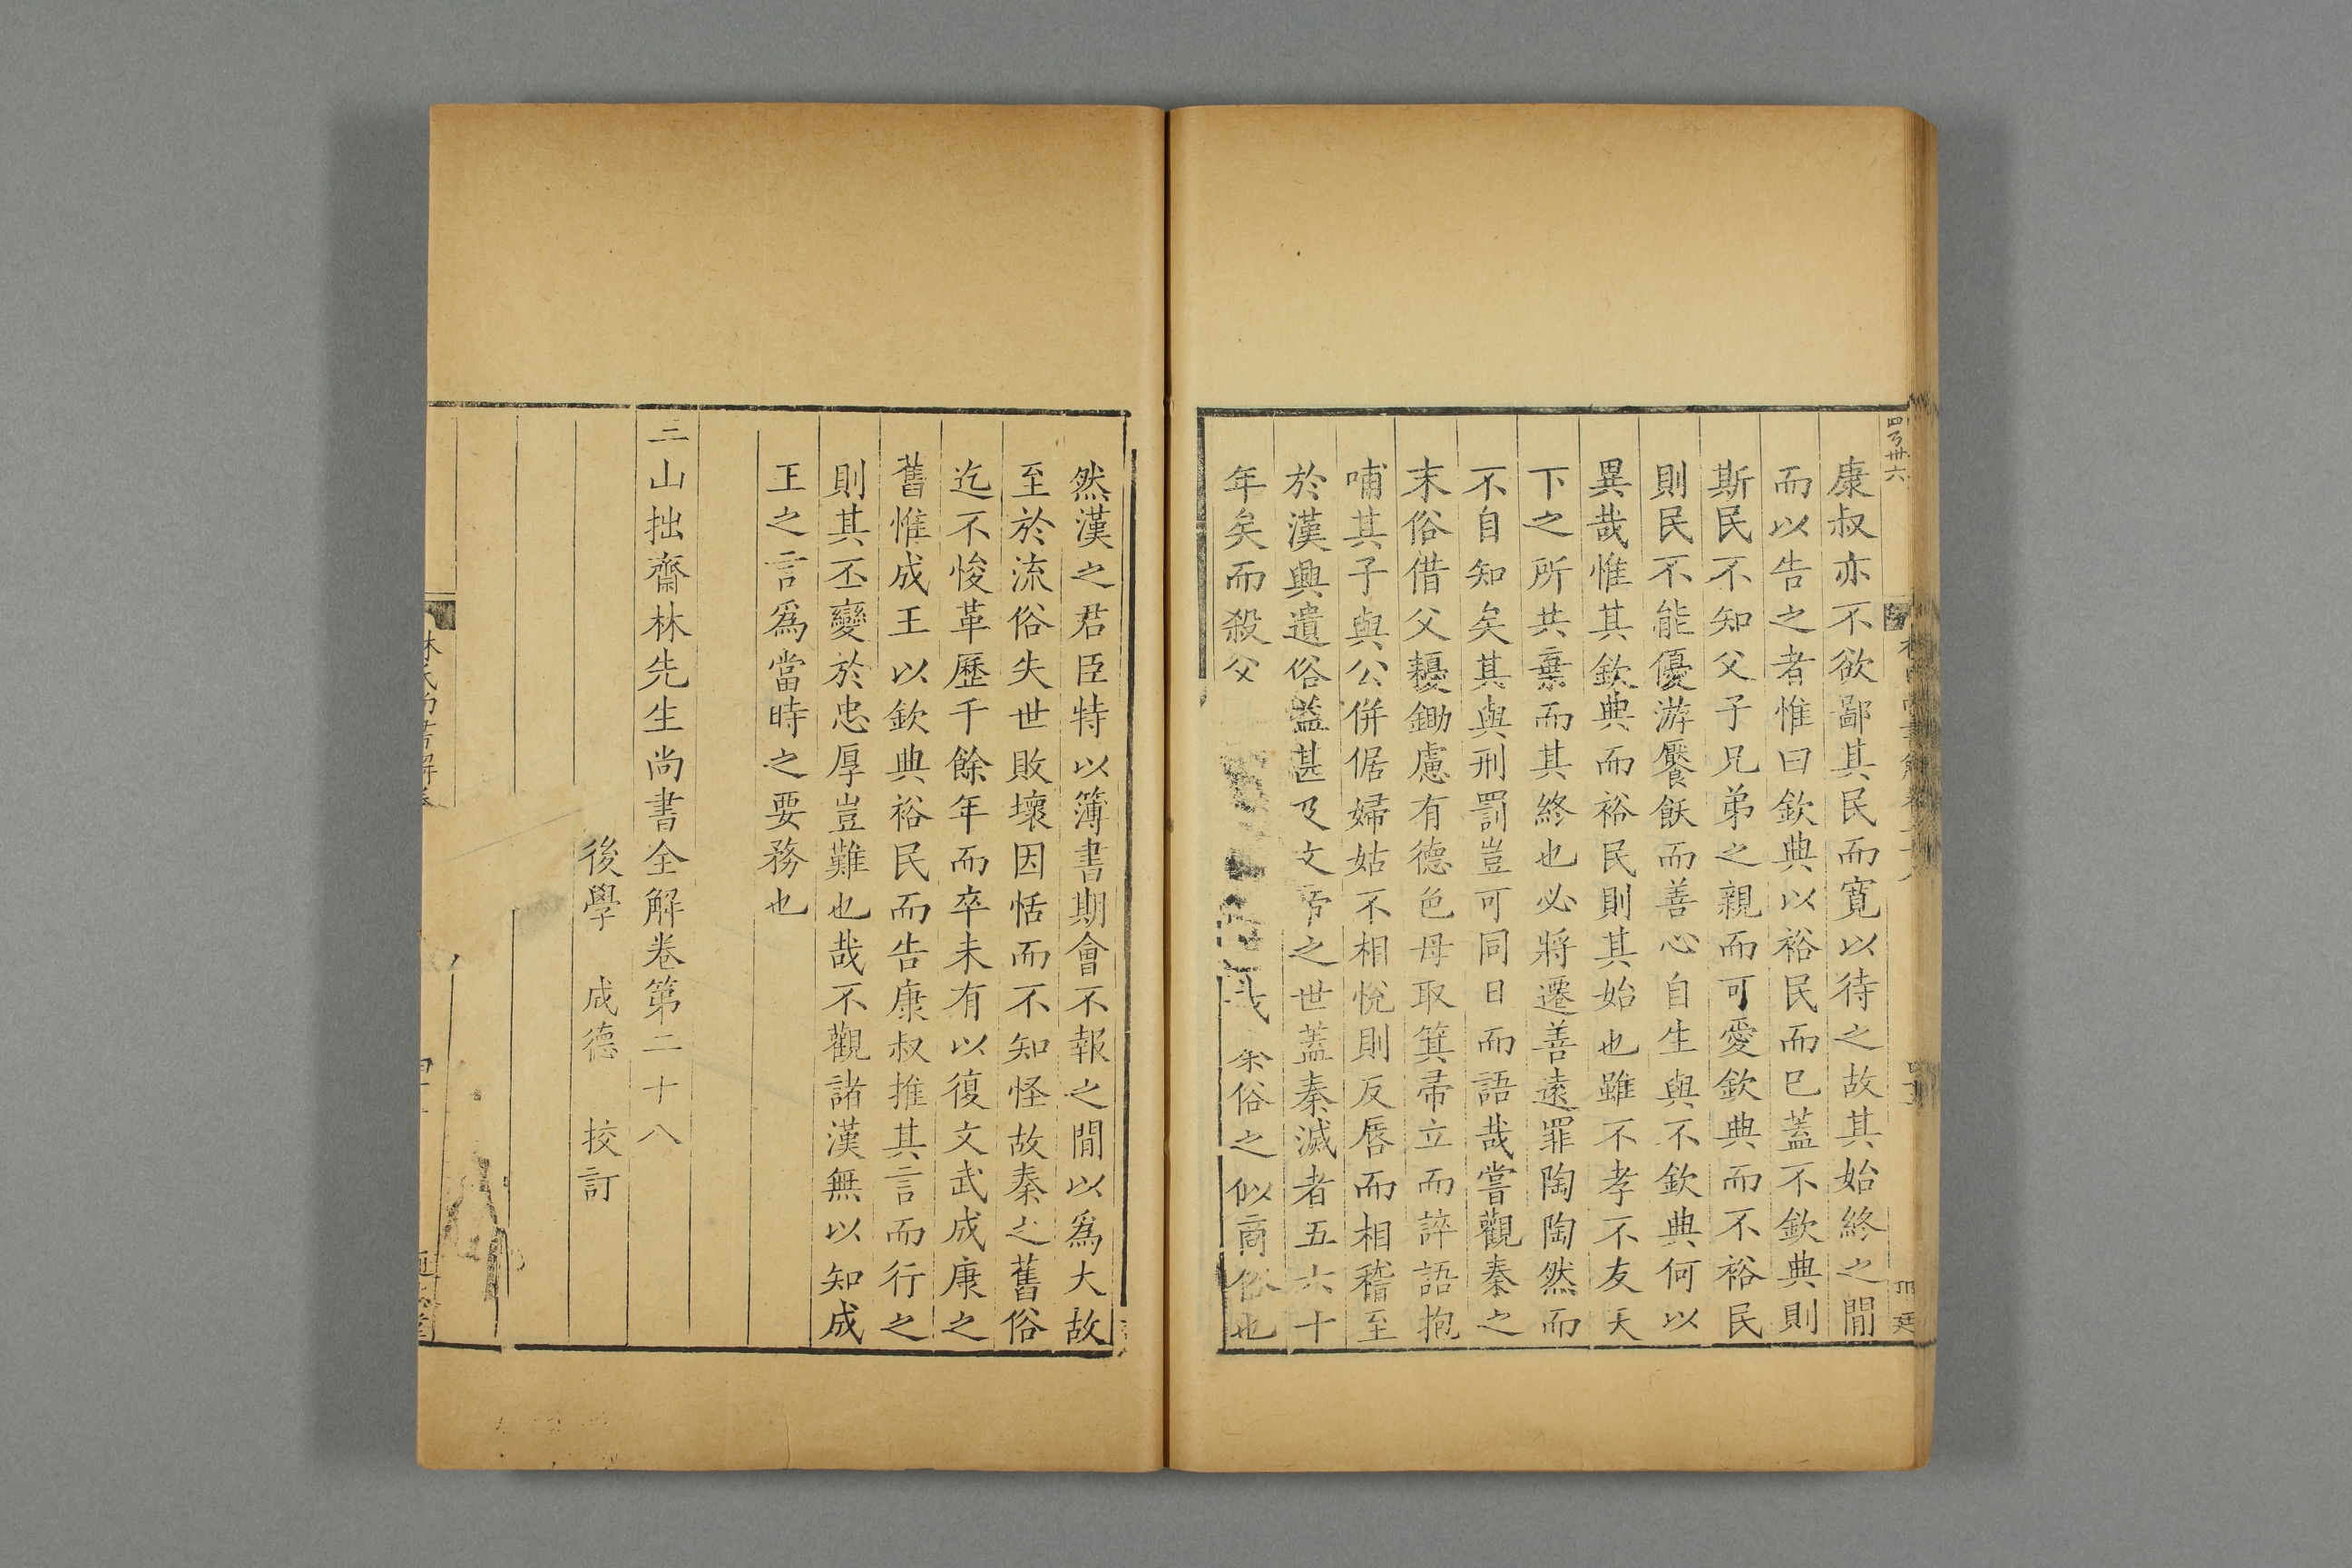 四弓卅六
康叔亦不欲鄙其民而寬以待之故其始終之閒
而以告之者惟曰欽典以裕民而已蓋不欽典則
斯民不知父子兄弟之親而可愛欽典而不裕民
則民不能優游饜飫而善心自生與不欽典何以
異哉惟其欽典而裕民則其始也雖不孝不友天
下之所共棄而其終也必將遷善遠罪陶陶然而
不自知矣其與刑罰豈可同日而語哉嘗觀秦之
末俗借父耰鋤慮有德色母取箕帚立而誶語抱
哺其子與公併倨婦姑不相悅則反唇而相稽至
於漢興遺俗益甚及文帝之世蓋秦滅者五六十
年矣而殺父
俗之似商俗也
然漢之君臣特以簿書期會不報之閒以為大故
至於流俗失世敗壞因恬而不知怪故秦之舊俗
迄不悛革歷千餘年而卒未有以復文武成康之
舊惟成王以欽典裕民而告康叔推其言而行之
則其丕變於忠厚豈難也哉不觀諸漢無以知成
王之言爲當時之要務也
三山拙齋林先生尚書全解卷第二十八
後學 成德 校訂